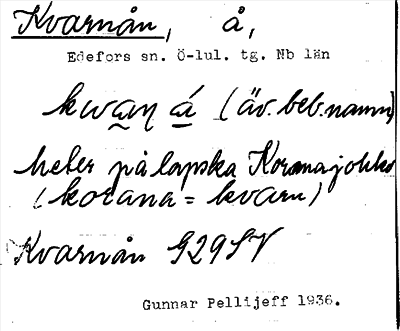 Kvarnån, å,
Edefors sn. Ö-lul. tg. Nb län
kwaɳ á (äv. beb.namn)
heter på lapska Koranajohko
(korana = kvarn)
Kvarnån G29SV
Gunnar Pellijeff 1936.